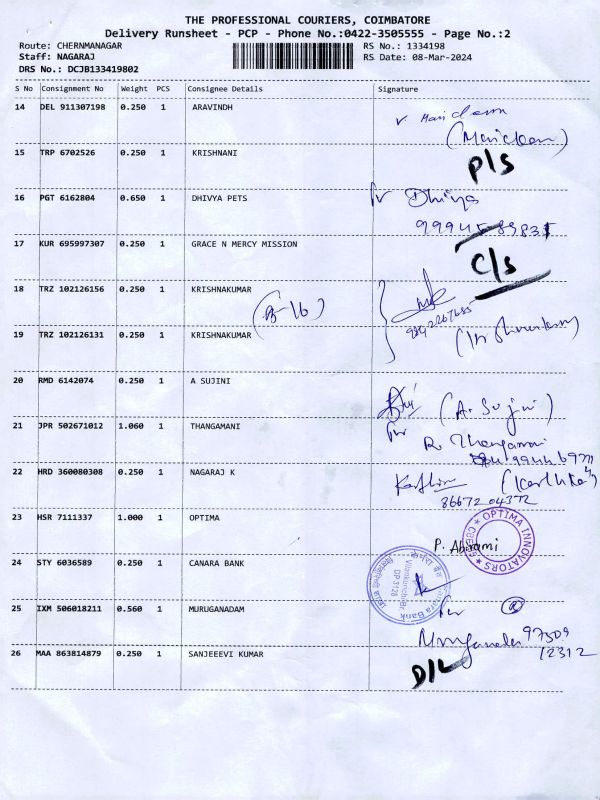 THE PROFESSIONAL COURIERS, COIMBATORE
Delivery Runsheet - PCP - Phone No.:0422-3505555 - Page No.:2
Route: CHERNMANAGAR RS No.: 1334198
Staff: NAGARAJ RS Date: 08-Mar-2024
DRS No.: DCJB133419802
S No Consignment No Weight PCS Consignee Details Signature
14 DEL 911307198 0.250 1 ARAVINDH
15 TRP 6702526 0.250 1 KRISHNANI P/S
16 PGT 6162804 0.650 1 DHIVYA PETS Dhivya
17 KUR 695997307 0.250 1 GRACE N MERCY MISSION C/s
18 TRZ 102126156 0.250 1 KRISHNAKUMAR
19 TRZ 102126131 0.250 1 KRISHNAKUMAR
20 RMD 6142074 0.250 1 A SUJINI (A. Sujini)
21 JPR 502671012 1.060 1 THANGAMANI R. Thangamani
22 HRD 360080308 0.250 1 NAGARAJ K
8667204372
23 HSR 7111337 1.000 1 OPTIMA P. Abirami
OPTIMA INNOVATORS
24 STY 6036589 0.250 1 CANARA BANK
Canara Bank
DP3128
25 IXM 506018211 0.560 1 MURUGANADAM
97509
12312
26 MAA 863814879 0.250 1 SANJEEEVI KUMAR D/L